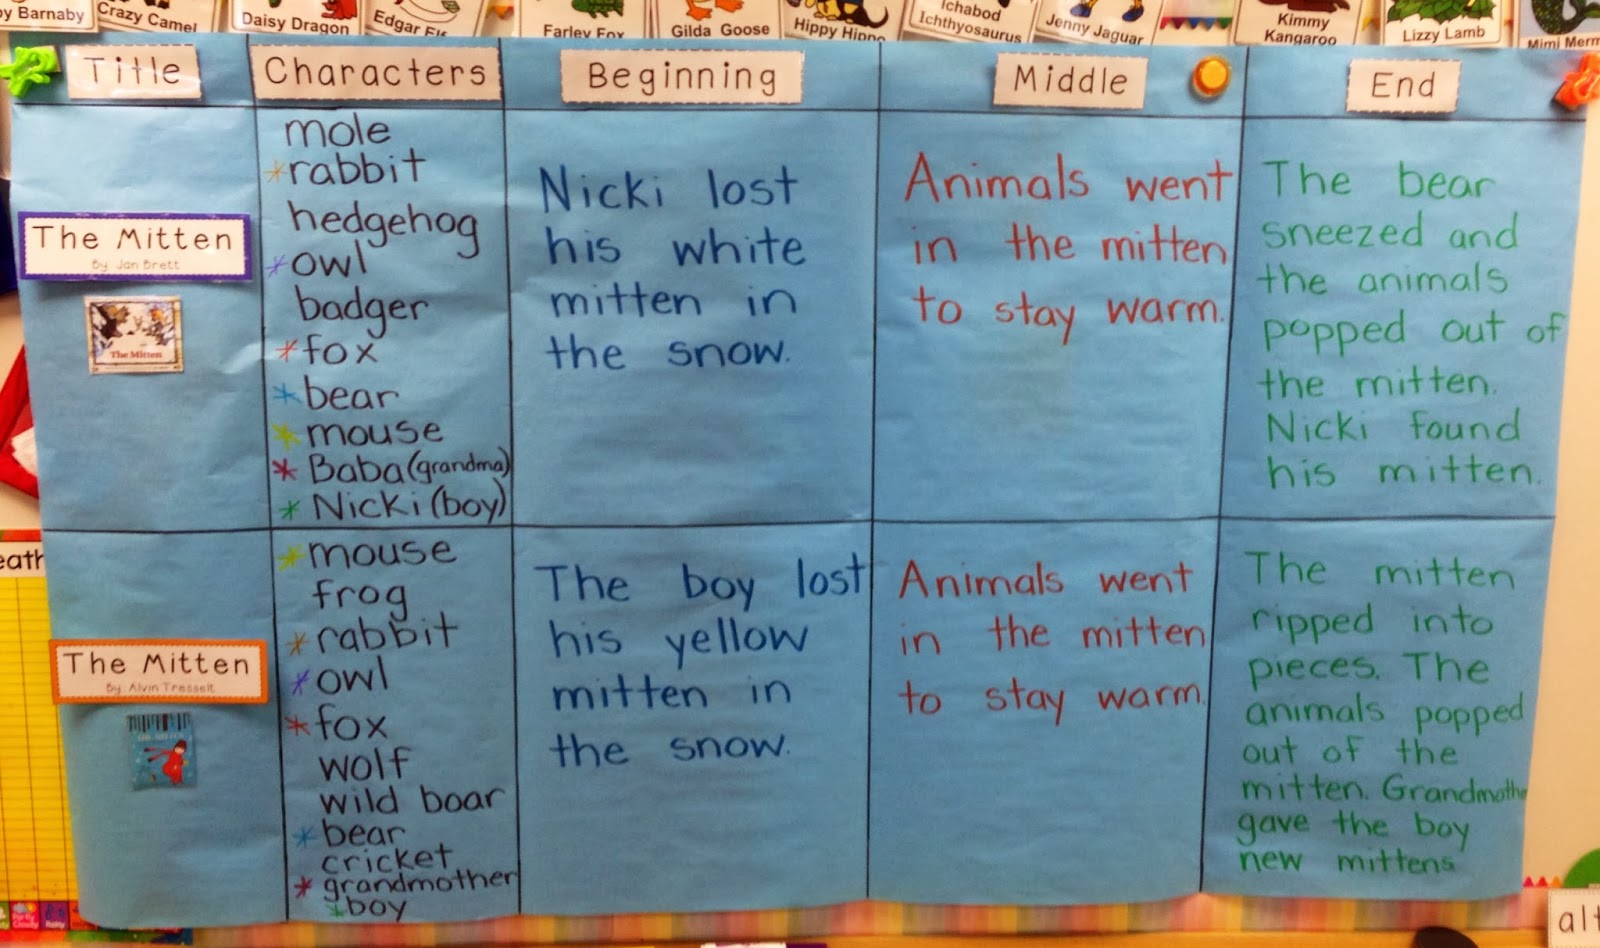 by Barnaby
Crazy Camel
Daisy Dragon
Edgar Elf
Farley Fox
Gilda Goose
Hippy Hippo
Ichabod
Ichthyosaurus
Jenny Jaguar
Kimmy
Kangaroo
Lizzy Lamb
Mimi Merm
Title
Characters
Beginning
Middle
End
The Mitten
By Jan Brett
The Mitten
mole
*rabbit
hedgehog
*owl
badger
*fox
*bear
*mouse
*Baba (grandma)
*Nicki (boy)
Nicki lost
his white
mitten in
the snow.
Animals went
in the mitten
to stay warm.
The bear
sneezed and
the animals
popped out of
the mitten.
Nicki found
his mitten.
The Mitten
By Alvin Tresselt
*mouse
frog
*rabbit
*owl
*fox
wolf
wild boar
*bear
cricket
*grandmother
*boy
The boy lost
his yellow
mitten in
the snow.
Animals went
in the mitten
to stay warm.
The mitten
ripped into
pieces. The
animals popped
out of the
mitten. Grandmothe
gave the boy
new mittens
eath
alt